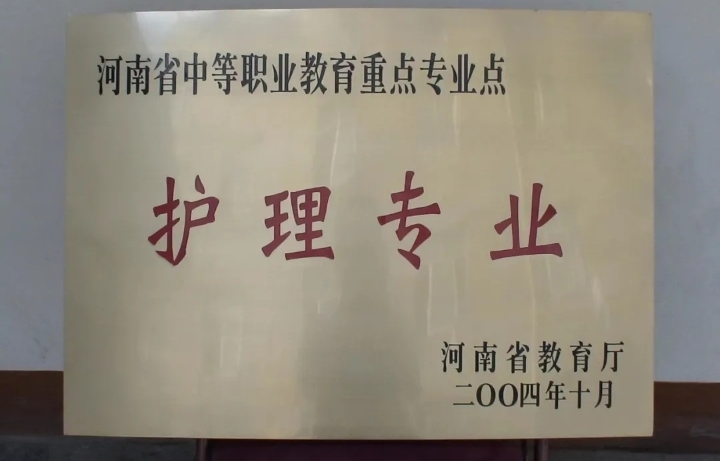 河南省中等职业教育重点专业点
护理专业
河南省教育厅
二〇〇四年十月